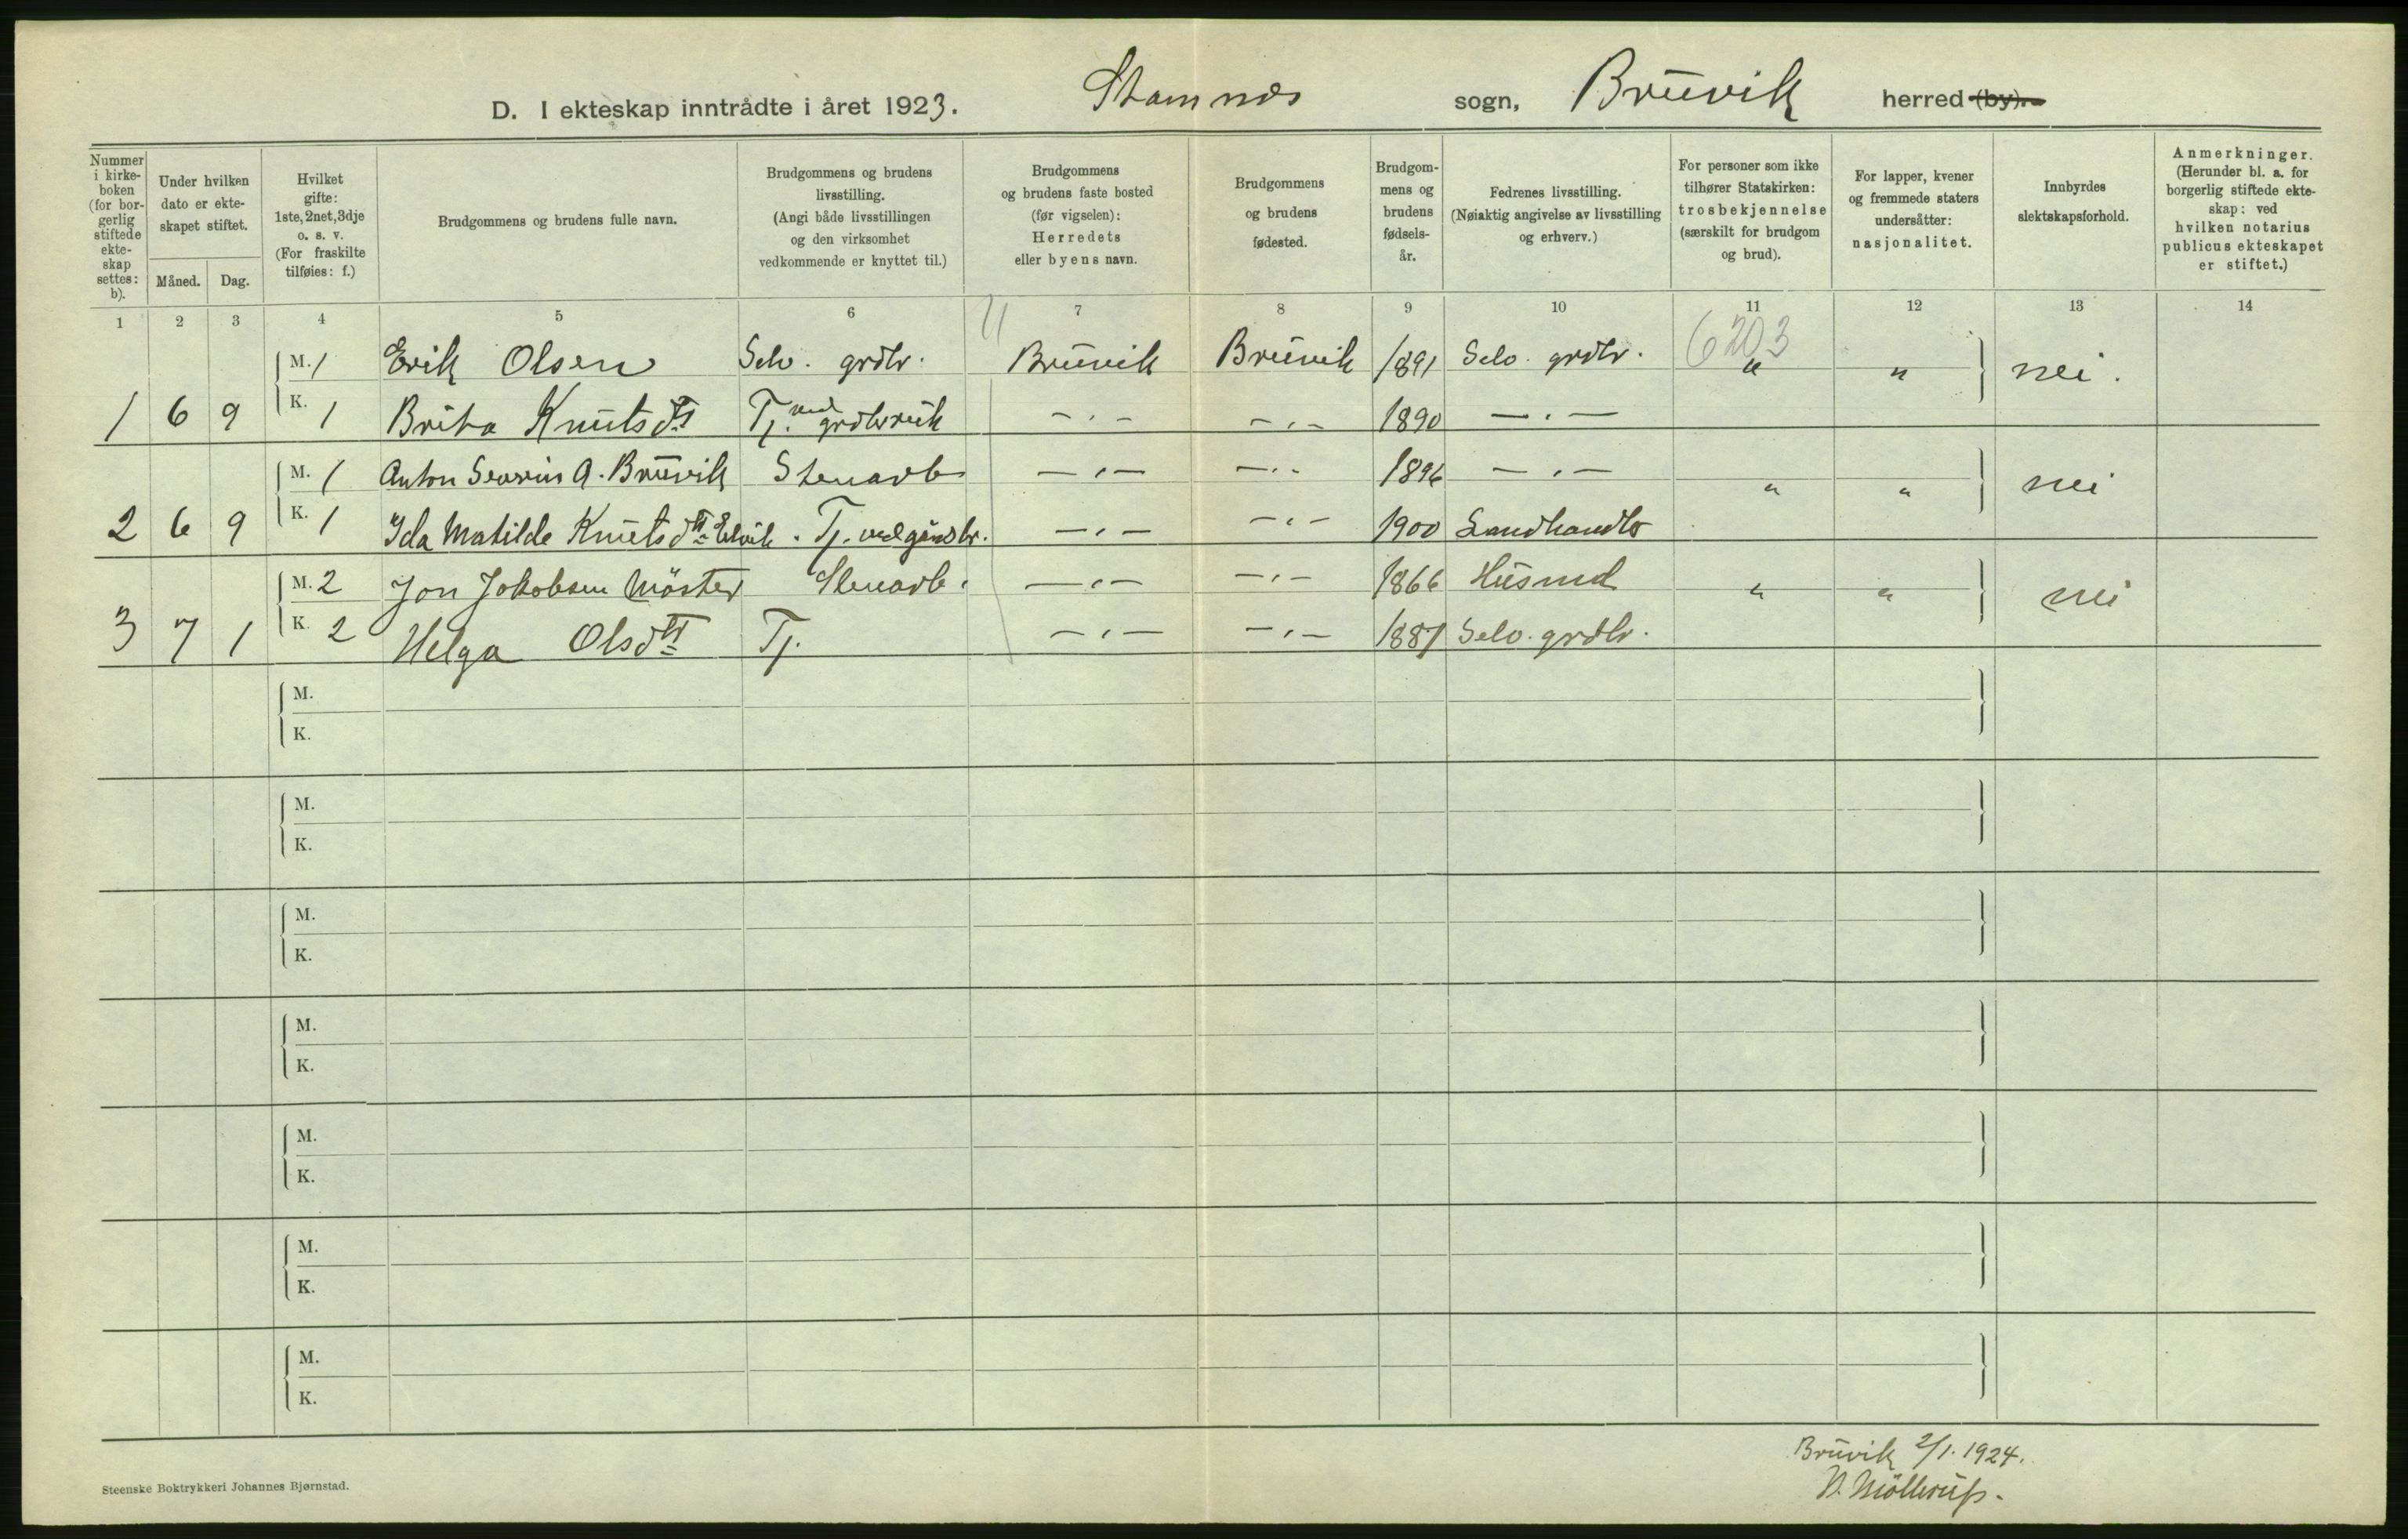 D. I ekteskap inntrådte i året 1923. Stamnes sogn, Bruvik herred (by).
Nummer i kirkeboken (for borgerlig stiftede ekteskap settes: b).
Under hvilken dato er ekteskapet stiftet.
Måned. Dag.
Hvilket gifte: 1ste, 2net, 3dje o. s. v. (For fraskilte tilføies: f.)
Brudgommens og brudens fulle navn.
Brudgommens og brudens livsstilling. (Angi både livsstillingen og den virksomhet vedkommende er knyttet til.)
Brudgommens og brudens faste bosted (før vigselen): Herredets eller byens navn.
Brudgommens og brudens fødested.
Brudgommens og brudens fødselsår.
Fedrenes livsstilling. (Nøiaktig angivelse av livsstilling og erhverv.)
For personer som ikke tilhører Statskirken: trosbekjennelse (særskilt for brudgom og brud).
For lapper, kvener og fremmede staters undersåtter: nasjonalitet.
Innbyrdes slektskapsforhold.
Anmerkninger. (Herunder bl. a. for borgerlig stiftede ekteskap: ved hvilken notarius publicus ekteskapet er stiftet.)
1 2 3 4 5 6 7 8 9 10 11 12 13 14
6203
M. 1 Erik Olsen Selv. grdbr. Bruvik Bruvik 1891 Selv. grdbr. " " nei.
1 6 9 K. 1 Brita Knutsdtr Tj. ved grdbruk — " — — " — 1890 — " —
M. 1 Anton Severin A. Bruvik Stenarb — " — — " — 1896 — " — " " nei
2 6 9 K. 1 Ida Matilde Knutsdtr Elvik. Tj. ved gårdbr. — " — — " — 1900 Landhandler
M. 2 Jon Jakobsen Möster Stenarb. — " — — " — 1866 Husmd " " nei
3 7 1 K. 2 Helga Olsdtr Tj. — " — — " — 1887 Selv. grdbr.
M.
K.
M.
K.
M.
K.
M.
K.
M.
K.
M.
K.
M.
K.
Bruvik 2/1. 1924.
N. Möllerup.
Steenske Boktrykkeri Johannes Bjørnstad.